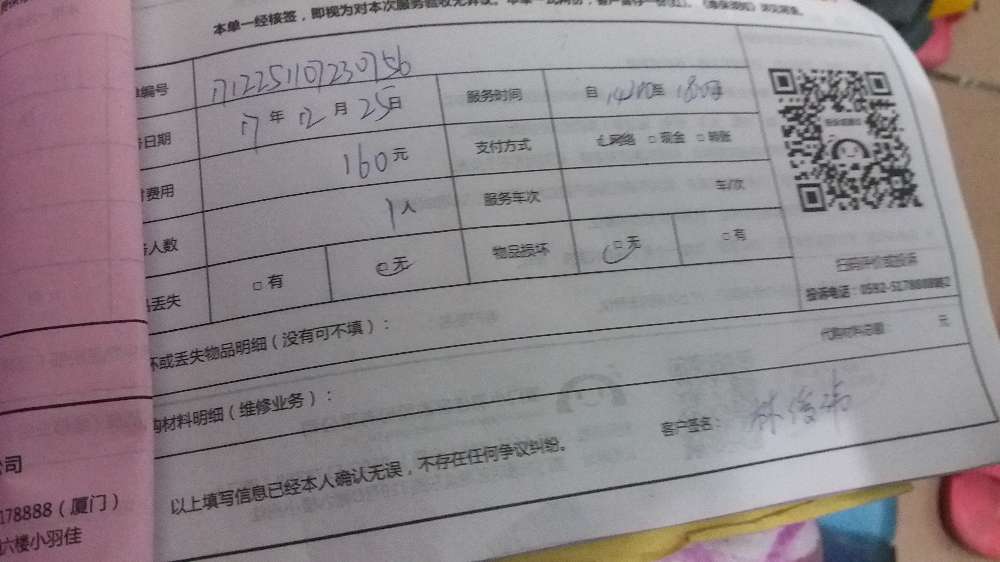 本单一经核签，即视为对本次服务验收无异议。本单一式两份，客户留存一份(红)。
单编号 1712251107230756
日期 17年12月25日 服务时间 自14:00至18:00
费用 160元 支付方式 网络 □现金 □转账
人数 1人 服务车次 车/次
丢失 □有 □无 物品损坏 □无 □有
扫码评价或投诉
投诉电话：0592-5178888
坏或丢失物品明细（没有可不填）：
代购材料总额： 元
购材料明细（维修业务）：
客户签名：
以上填写信息已经本人确认无误，不存在任何争议纠纷。
公司
178888（厦门）
六楼小羽佳